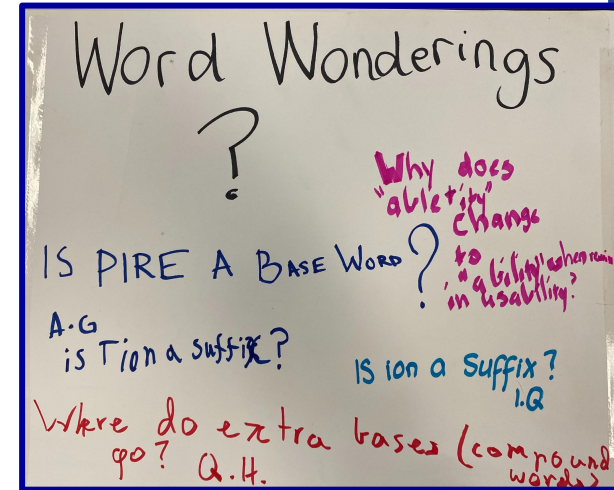 Word Wonderings
?
Why does
"able+ity"
change
to
"ability" when
in usability?
IS PIRE A BASE WORD?
A.G
is Tion a suffix?
IS ion a Suffix?
I.Q
Where do extra bases (compound
go? Q.H. words)